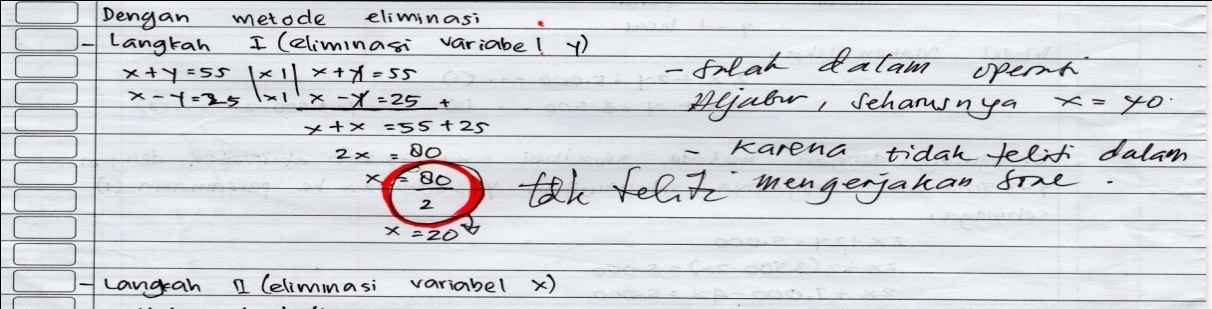 Dengan metode eliminasi
- Langkah I (eliminasi variabel y)
x + y = 55 | x1 | x + y = 55
x - y = 25 | x1 | x - y = 25 +
x + x = 55 + 25
2x = 80
x = 80/2
x = 20
- Salah dalam operasi Aljabar, seharusnya x = 40.
- Karena tidak teliti dalam mengerjakan soal.
tdk teliti
- Langkah II (eliminasi variabel x)